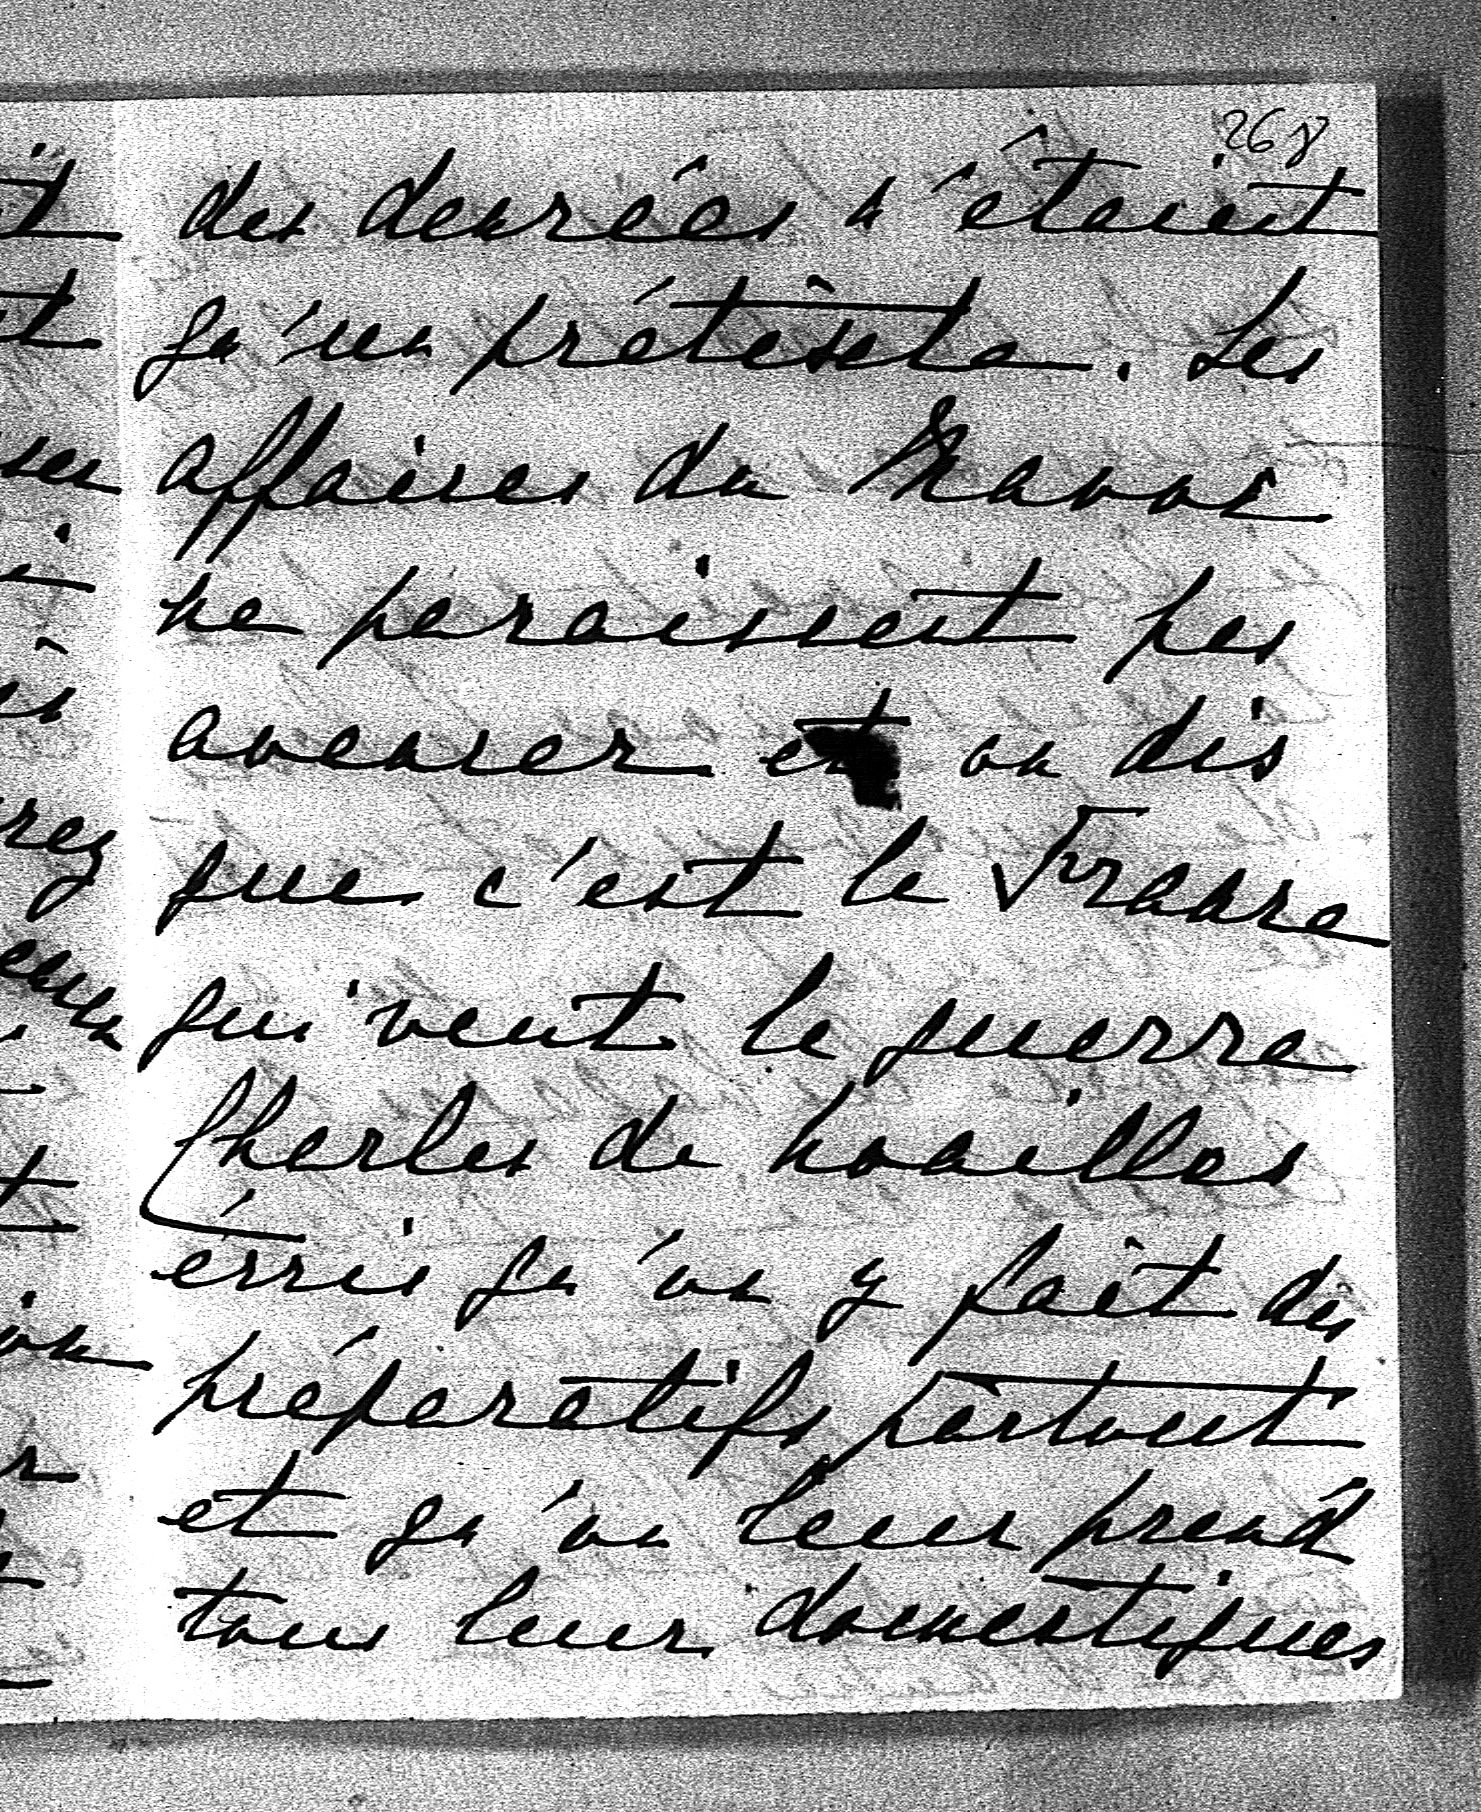 268
des denrées n'étaient
qu'un prétexte. Les
affaires du Maroc
ne paraissent pas
avancer et on dis
que c'est la France
qui veut la guerre
Charles de Noailles
écrit qu'on y fait des
préparatifs partout
et qu'on leur prend
tous leur domestiques